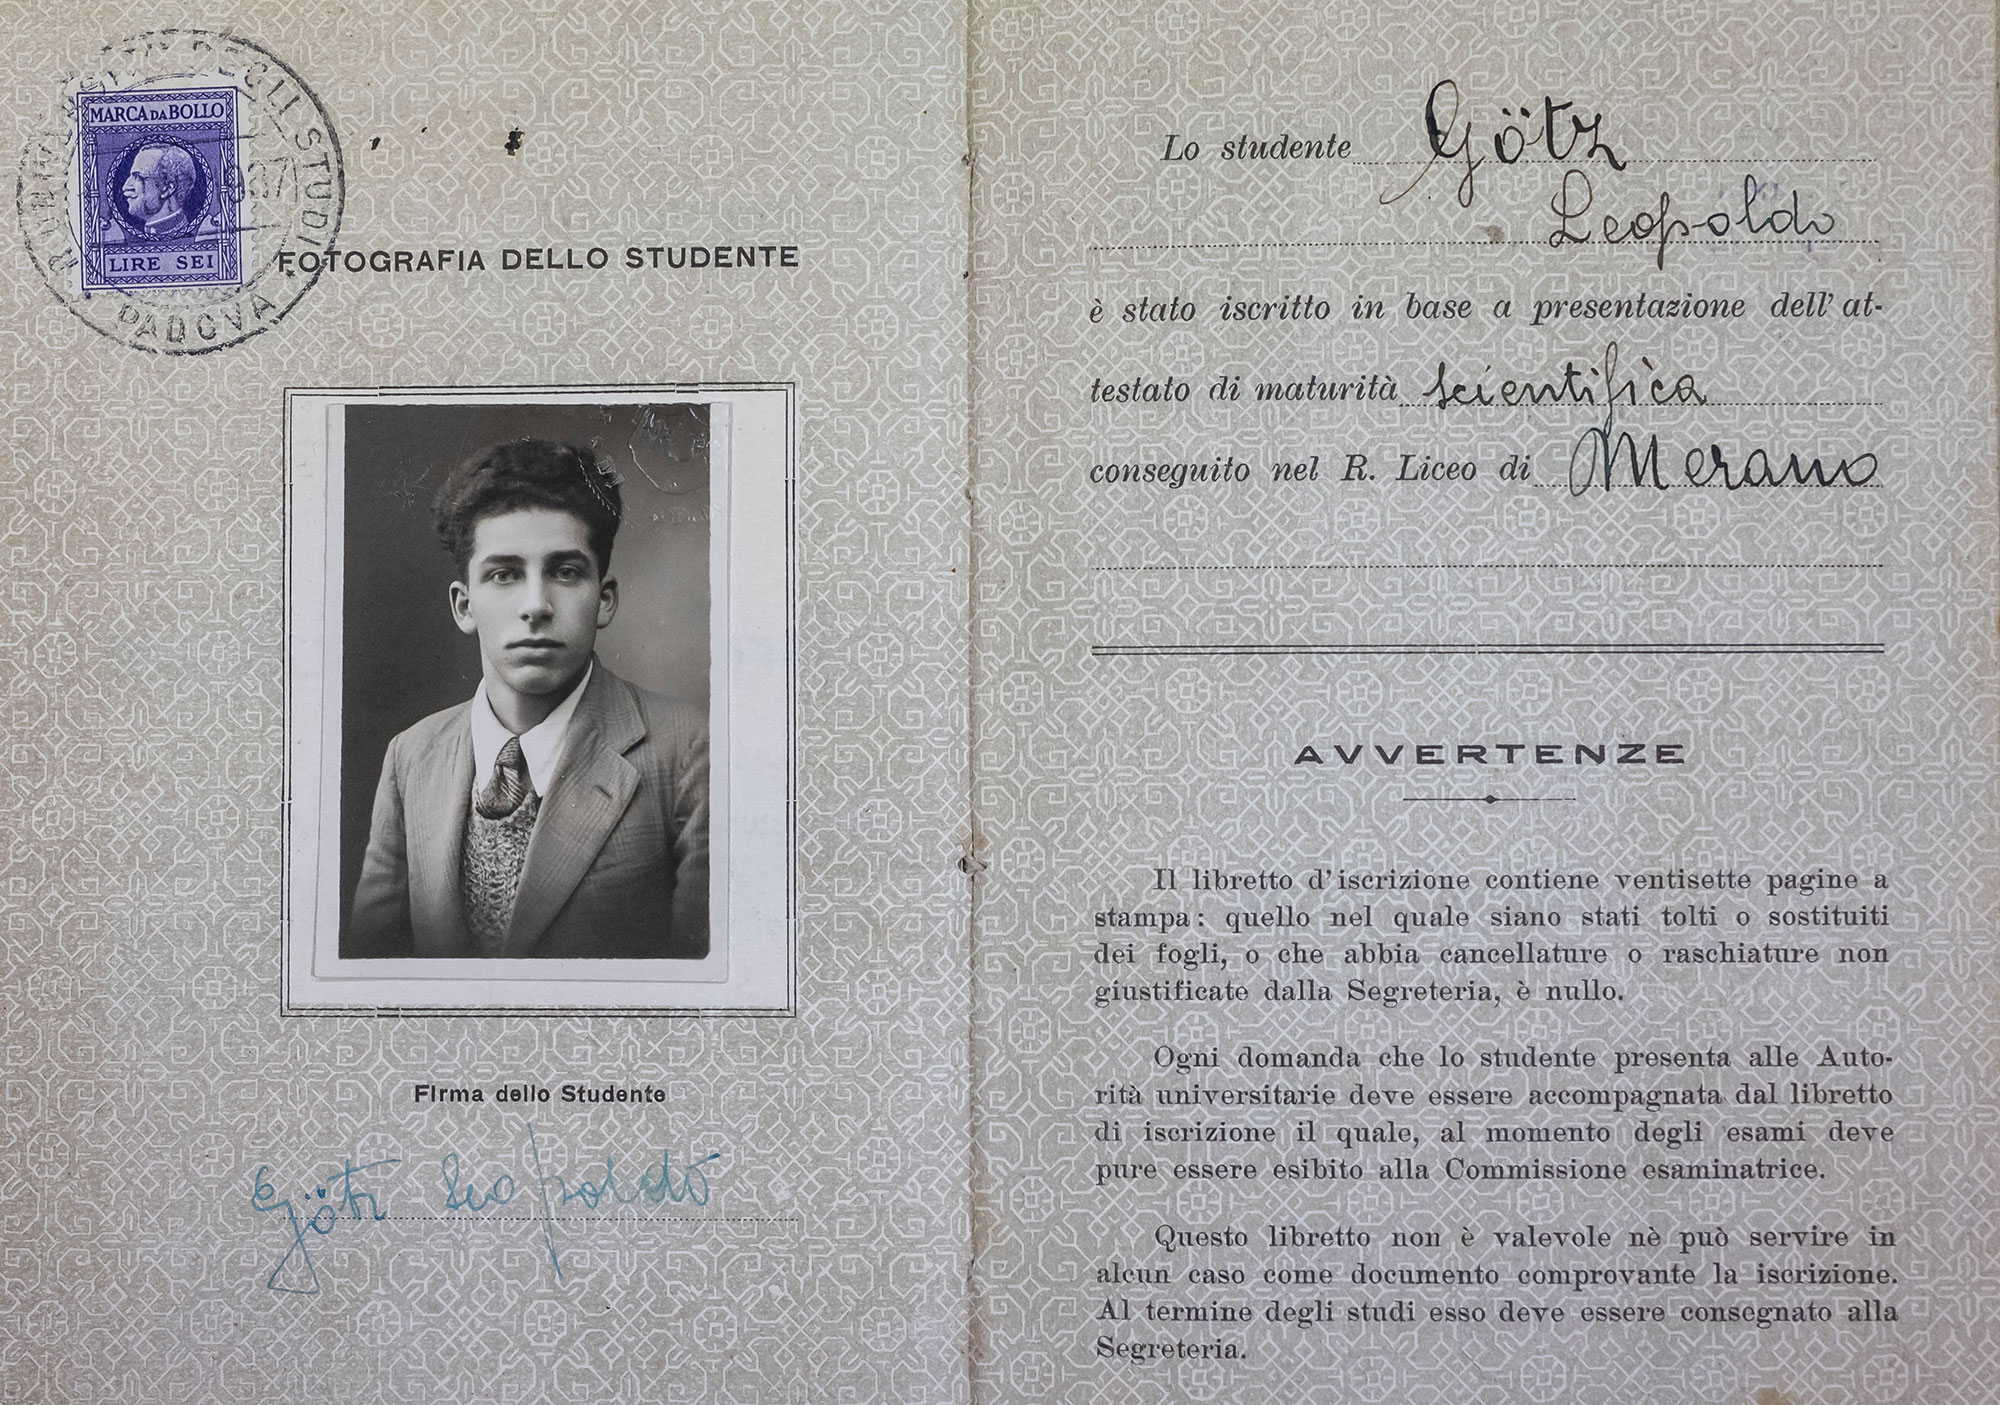 R. UNIVERSITÀ DEGLI STUDI
PADOVA
MARCA DA BOLLO
LIRE SEI
FOTOGRAFIA DELLO STUDENTE
Firma dello Studente
Götz Leopoldo
Lo studente Götz
Leopoldo
è stato iscritto in base a presentazione dell'at-
testato di maturità scientifica
conseguito nel R. Liceo di Merano
AVVERTENZE
Il libretto d'iscrizione contiene ventisette pagine a
stampa: quello nel quale siano stati tolti o sostituiti
dei fogli, o che abbia cancellature o raschiature non
giustificate dalla Segreteria, è nullo.
Ogni domanda che lo studente presenta alle Auto-
rità universitarie deve essere accompagnata dal libretto
di iscrizione il quale, al momento degli esami deve
pure essere esibito alla Commissione esaminatrice.
Questo libretto non è valevole nè può servire in
alcun caso come documento comprovante la iscrizione.
Al termine degli studi esso deve essere consegnato alla
Segreteria.